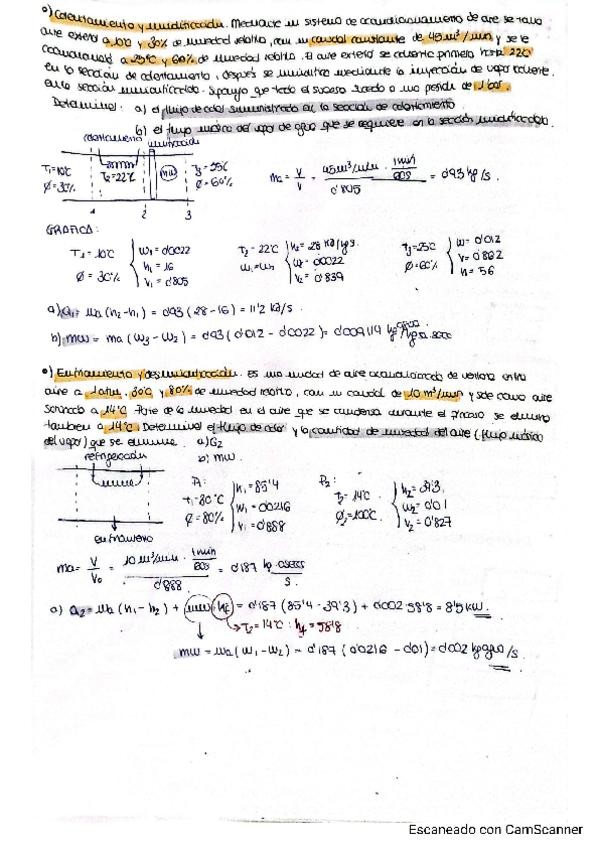 •) Calentamiento y humidificación. Mediante un sistema de acondicionamiento de aire se toma
aire exterior a 10ºC y 30% de humedad relativa, con un caudal constante de 45 m³/min y se le
acondiciona a 25ºC y 60% de humedad relativa. El aire exterior se calienta primero hasta 22ºC
en la sección de calentamiento, después se humidifica mediante la inyección de vapor caliente
en la sección humidificadora. Suponga que todo el suceso a una presión de 1 bar.
Determinar: a) el flujo de calor suministrado en la sección de calentamiento
b) el flujo másico del vapor de agua que se requiere en la sección humidificadora.
calentamiento humidificación
T1=10ºC Ø=30% T2=22ºC mw Ø=60% ma = V/v = 45 m³/min · 1min/60s / 0'805 = 0'93 kg/s.
1 2 3
GRÁFICA:
T1 = 10ºC Ø = 30% { W1 = 0'0022 h1 = 16 v1 = 0'805
T2 = 22ºC W1=W2 { h2 = 28 W2 = 0'0022 v2 = 0'839
T3 = 25ºC Ø=60% { W = 0'012 v = 0'862 h = 56
a) Q1 = ma (h2-h1) = 0'93 (28-16) = 11'2 kJ/s.
b) mw = ma (W3 - W2) = 0'93 (0'012 - 0'0022) = 0'009114
•) Enfriamiento y deshumidificación. Es una unidad de aire acondicionado de ventana entra
aire a 1 atm, 30ºC y 80% de humedad relativa, con un caudal de 10 m³/min y sale como aire
saturado a 14ºC. Parte de la humedad en el aire que se condensa durante el proceso se elimina
también a 14ºC. Determine el flujo de calor y la cantidad de humedad del aire (flujo másico
del vapor) que se elimine. a) G2
b) mw.
refrigerador
P1: t1=30ºC Ø=80% { h1 = 85'4 W1 = 0'0216 v1 = 0'888
P2: T2=14ºC Ø2=100% { h2 = 39'3 W2 = 0'01 v2 = 0'827
enfriamiento
ma = V/V0 = 10 m³/min · 1min/60s / 0'888 = 0'187 kg a seco/s
a) Q2 = ma (h1 - h2) + mw · hf = 0'187 (85'4 - 39'3) + 0'002 · 58'8 = 8'5 kW.
T2=14ºC : hf = 58'8
mw = ma (W1 - W2) = 0'187 (0'0216 - 0'01) = 0'002 kg agua/s.
Escaneado con CamScanner